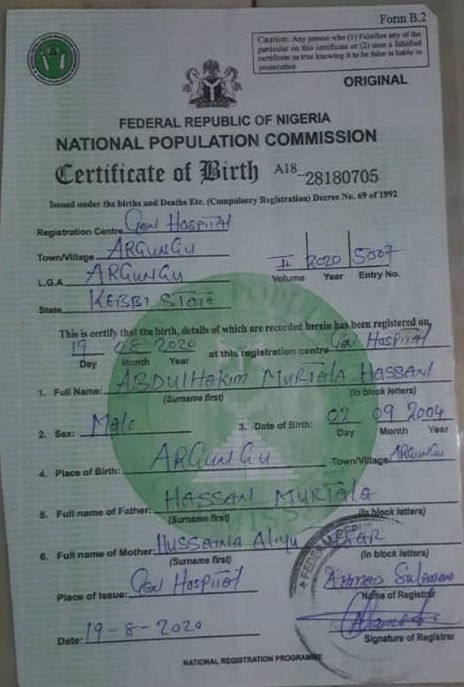 Form B.2
Caution: Any person who (1) Falsifies any of the
particular on this certificate or (2) uses a falsified
certificate as true knowing it to be false is liable to
prosecution
ORIGINAL
FEDERAL REPUBLIC OF NIGERIA
NATIONAL POPULATION COMMISSION
Certificate of Birth A18 28180705
Issued under the births and Deaths Etc. (Compulsory Registration) Decree No. 69 of 1992
Registration Centre Gen Hospital
Town/Village ARGUNGU
L.G.A ARGUNGU
II 2020 5007
Volume Year Entry No.
State KEBBI STATE
This is certify that the birth, details of which are recorded herein has been registered on
19 08 2020 at this registration centre Gen Hospital
Day Month Year
1. Full Name: ABDULHAKIM MURTALA HASSAN
(Surname first) (In block letters)
2. Sex: Male 3. Date of Birth: 02 09 2004
Day Month Year
4. Place of Birth: ARGUNGU Town/Village ARGUNGU
5. Full name of Father: HASSAN MURTALA
(Surname first) (In block letters)
6. Full name of Mother: HUSSAINA Aliyu
(Surname first) (In block letters)
Place of Issue: Gen Hospital
Name of Registrar
Date: 19-8-2020
Signature of Registrar
NATIONAL REGISTRATION PROGRAMME